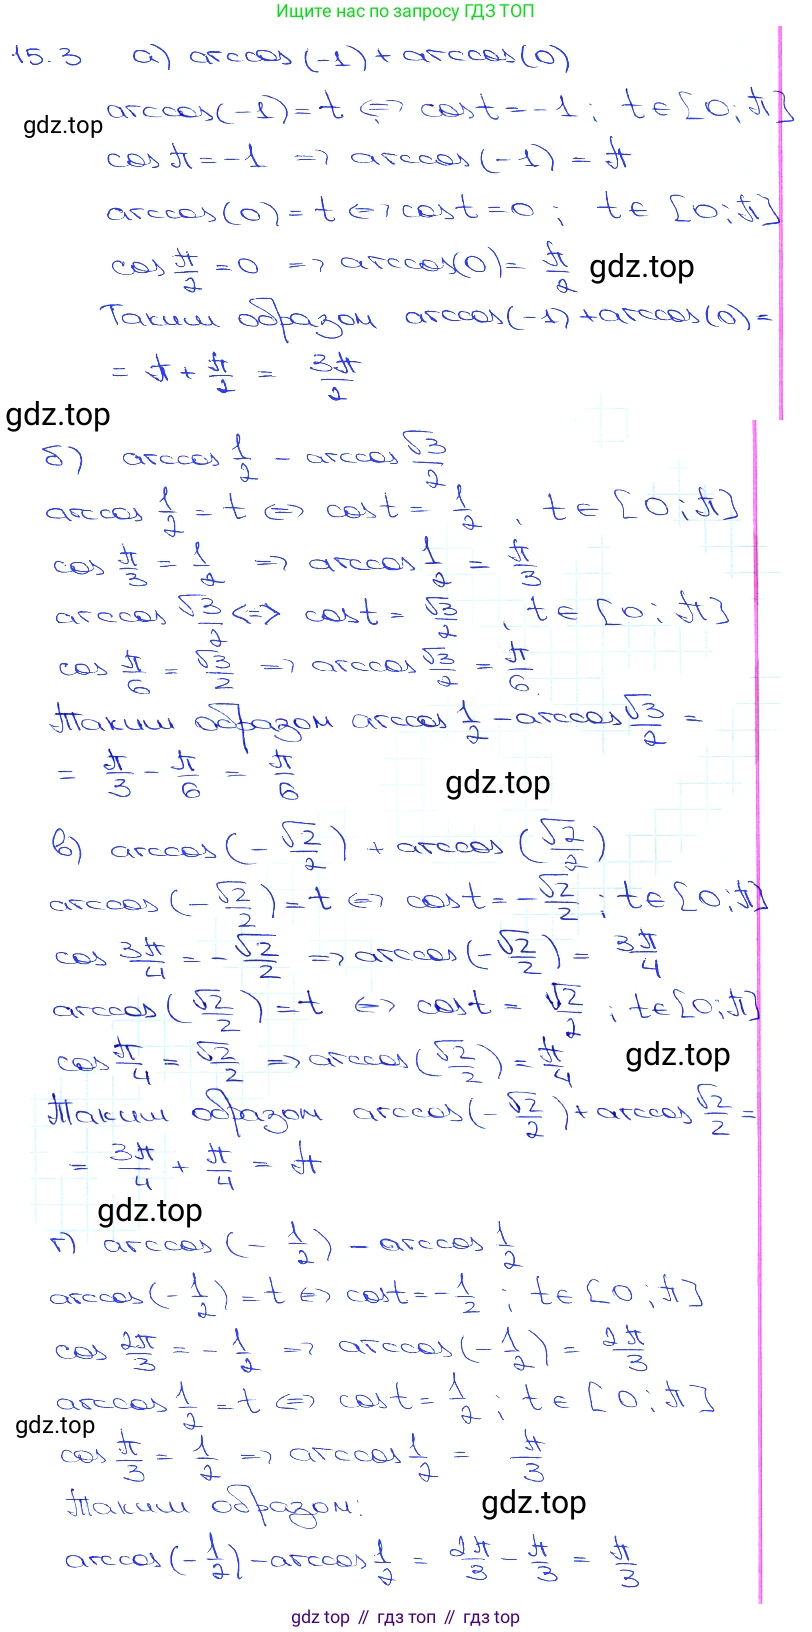 Ищите нас по запросу ГДЗ ТОП
15.3 а) arccos(-1)+arccos(0)
arccos(-1)=t <=> cost=-1; t∈[0;π]
gdz.top
cosπ=-1 => arccos(-1)=π
arccos(0)=t <=> cost=0; t∈[0;π]
cos π/2 =0 => arccos(0)= π/2 gdz.top
Таким образом arccos(-1)+arccos(0)=
= π + π/2 = 3π/2
gdz.top
б) arccos 1/2 - arccos √3/2
arccos 1/2 = t <=> cost = 1/2, t∈[0;π]
cos π/3 = 1/2 => arccos 1/2 = π/3
arccos √3/2 <=> cost = √3/2, t∈[0;π]
cos π/6 = √3/2 => arccos √3/2 = π/6.
Таким образом arccos 1/2 - arccos √3/2 =
= π/3 - π/6 = π/6
gdz.top
в) arccos(-√2/2) + arccos(√2/2)
arccos(-√2/2)=t <=> cost=-√2/2; t∈[0;π]
cos 3π/4 = -√2/2 => arccos(-√2/2) = 3π/4
arccos(√2/2)=t <=> cost = √2/2; t∈[0;π]
cos π/4 = √2/2 => arccos(√2/2) = π/4
gdz.top
Таким образом arccos(-√2/2)+arccos √2/2 =
= 3π/4 + π/4 = π
gdz.top
г) arccos(-1/2) - arccos 1/2
arccos(-1/2)=t <=> cost=-1/2; t∈[0;π]
cos 2π/3 = -1/2 => arccos(-1/2) = 2π/3
arccos 1/2 = t <=> cost = 1/2; t∈[0;π]
gdz.top
cos π/3 = 1/2 => arccos 1/2 = π/3
Таким образом: gdz.top
arccos(-1/2)-arccos 1/2 = 2π/3 - π/3 = π/3
gdz top // гдз топ // gdz top